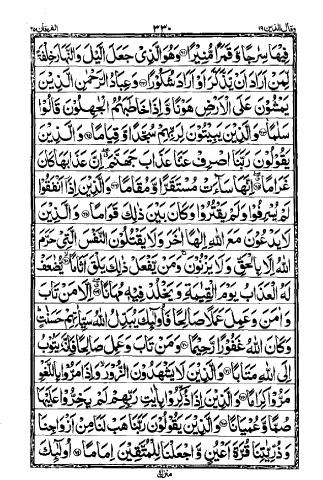 وقال الذين ١٩ ٣٣٠ الفرقان ٢٥
فِيْهَا سِرٰجًا وَّقَمَرًا مُّنِيْرًا وَهُوَ الَّذِيْ جَعَلَ الَّيْلَ وَالنَّهَارَ خِلْفَةً
لِّمَنْ اَرَادَ اَنْ يَّذَّكَّرَ اَوْ اَرَادَ شُكُوْرًا وَعِبَادُ الرَّحْمٰنِ الَّذِيْنَ
يَمْشُوْنَ عَلَى الْاَرْضِ هَوْنًا وَّاِذَا خَاطَبَهُمُ الْجٰهِلُوْنَ قَالُوْا
سَلٰمًا وَالَّذِيْنَ يَبِيْتُوْنَ لِرَبِّهِمْ سُجَّدًا وَّقِيَامًا وَالَّذِيْنَ
يَقُوْلُوْنَ رَبَّنَا اصْرِفْ عَنَّا عَذَابَ جَهَنَّمَ اِنَّ عَذَابَهَا كَانَ
غَرَامًا اِنَّهَا سَآءَتْ مُسْتَقَرًّا وَّمُقَامًا وَالَّذِيْنَ اِذَآ اَنْفَقُوْا
لَمْ يُسْرِفُوْا وَلَمْ يَقْتُرُوْا وَكَانَ بَيْنَ ذٰلِكَ قَوَامًا وَالَّذِيْنَ
لَا يَدْعُوْنَ مَعَ اللّٰهِ اِلٰهًا اٰخَرَ وَلَا يَقْتُلُوْنَ النَّفْسَ الَّتِيْ حَرَّمَ
اللّٰهُ اِلَّا بِالْحَقِّ وَلَا يَزْنُوْنَ وَمَنْ يَّفْعَلْ ذٰلِكَ يَلْقَ اَثَامًا يُّضٰعَفْ
لَهُ الْعَذَابُ يَوْمَ الْقِيٰمَةِ وَيَخْلُدْ فِيْهٖ مُهَانًا اِلَّا مَنْ تَابَ
وَاٰمَنَ وَعَمِلَ عَمَلًا صَالِحًا فَاُولٰٓئِكَ يُبَدِّلُ اللّٰهُ سَيِّاٰتِهِمْ حَسَنٰتٍ
وَكَانَ اللّٰهُ غَفُوْرًا رَّحِيْمًا وَمَنْ تَابَ وَعَمِلَ صَالِحًا فَاِنَّهٗ يَتُوْبُ
اِلَى اللّٰهِ مَتَابًا وَالَّذِيْنَ لَا يَشْهَدُوْنَ الزُّوْرَ وَاِذَا مَرُّوْا بِاللَّغْوِ
مَرُّوْا كِرَامًا وَالَّذِيْنَ اِذَا ذُكِّرُوْا بِاٰيٰتِ رَبِّهِمْ لَمْ يَخِرُّوْا عَلَيْهَا
صُمًّا وَّعُمْيَانًا وَالَّذِيْنَ يَقُوْلُوْنَ رَبَّنَا هَبْ لَنَا مِنْ اَزْوَاجِنَا
وَذُرِّيّٰتِنَا قُرَّةَ اَعْيُنٍ وَّاجْعَلْنَا لِلْمُتَّقِيْنَ اِمَامًا اُولٰٓئِكَ